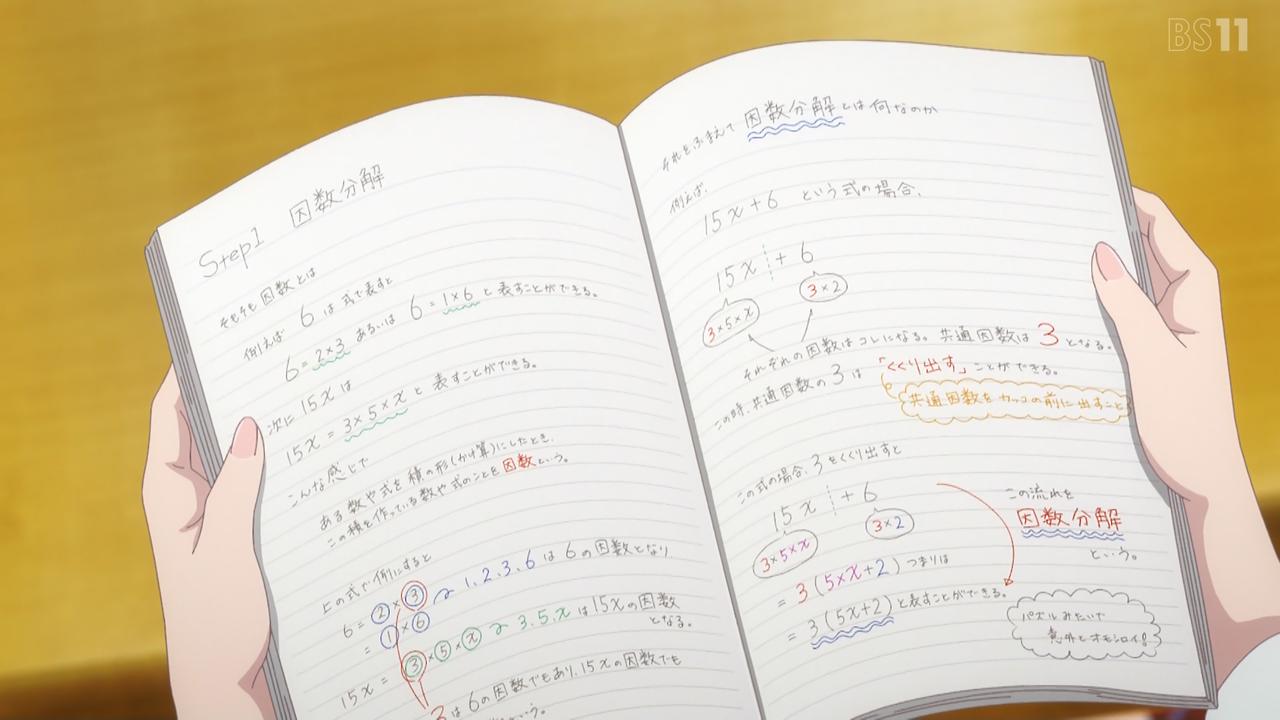 BS11
Step1 因数分解
そもそも因数とは
例えば 6 は 式で表すと
6=2×3 あるいは 6=1×6 と表すことができる。
次に 15x は
15x=3×5×x と表すことができる。
こんな感じで
ある数や式を積の形(かけ算)にしたとき、
この積を作っている数や式のことを因数という。
上の式で例にすると
6=2×3 → 1,2,3,6 は 6の因数となり、
=1×6
15x=3×5×x → 3,5,x は 15xの因数
となる。
3は6の因数でもあり、15xの因数でも
という。
それをふまえて 因数分解とは何なのか
例えば、
15x+6 という式の場合、
15x+6
3×5×x 3×2
それぞれの因数はコレになる。共通因数は 3 となる。
この時、共通因数の3は 「くくり出す」ことができる。
共通因数をカッコの前に出すこと
この式の場合、3をくくり出すと
15x+6
3×5×x 3×2
=3(5×x+2) つまりは
=3(5x+2) と表すことができる。
この流れを
因数分解
という。
パズルみたいで
意外とオモシロイ!